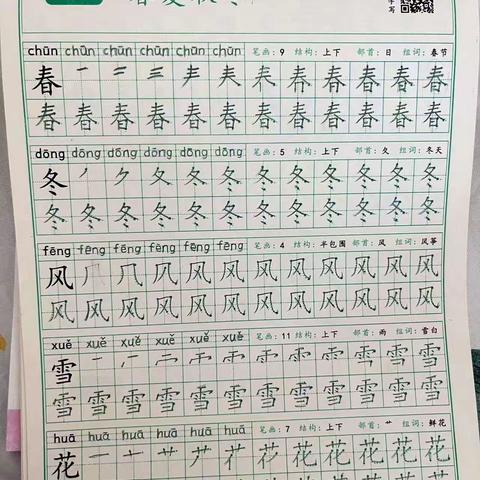 春夏秋冬
chūn chūn chūn chūn chūn chūn 笔画：9 结构：上下 部首：日 组词：春节
春 一 二 三 春 春 春 春 春
春 春 春 春 春 春 春 春 春 春 春
dōng dōng dōng dōng dōng dōng 笔画：5 结构：上下 部首：夂 组词：冬天
冬 丿 夂 冬 冬 冬 冬 冬 冬 冬 冬
冬 冬 冬 冬 冬 冬 冬 冬 冬 冬 冬 冬
fēng fēng fēng fēng fēng fēng 笔画：4 结构：半包围 部首：风 组词：风筝
风 几 风 风 风 风 风 风 风 风 风
风 风 风 风 风 风 风 风 风 风 风 风
xuě xuě xuě xuě xuě xuě 笔画：11 结构：上下 部首：雨 组词：雪白
雪 一 雪 雪 雪
雪 雪 雪 雪 雪 雪 雪 雪 雪 雪 雪 雪
huā huā huā huā huā huā 笔画：7 结构：上下 部首：艹 组词：鲜花
花 一 十 艹 花 花 花 花 花